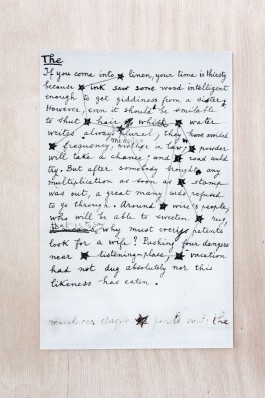 The
If you come into ★ linen, your time is thirsty
because ★ ink saw some wood intelligent
enough to get giddiness from a sister.
However, even it should be smilable
to shut ★ hair of which ★ water
writes always plural, they have avoided
★ frequency, mother in law; ★ powder
will take a chance; and ★ road could
try. But after somebody brought any
multiplication as soon as ★ stamp
was out, a great many cords refused
to go through. Around ★ wire's people,
who will be able to sweeten ★ rug,
that is to say, why must every patents
look for a wife? Pushing four dangers
near ★ listening-place, ★ vacation
had not dug absolutely nor this
likeness has eaten.
★ the